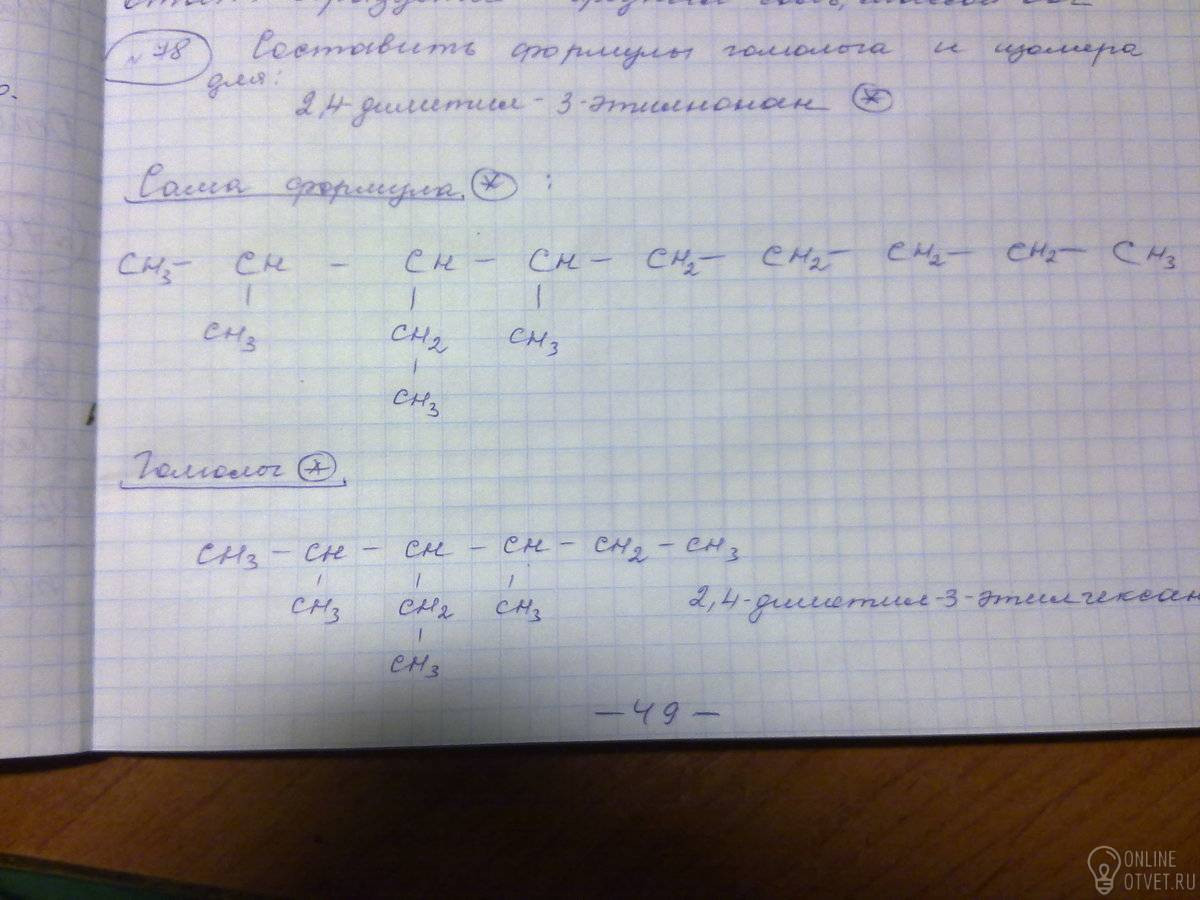 № 78 Составить формулы гомолога и изомера
для:
2,4-диметил-3-этилнонан *
Сама формула * :
CH3 - CH - CH - CH - CH2 - CH2 - CH2 - CH2 - CH3
CH3 CH2 CH3
CH3
Гомолог *
CH3 - CH - CH - CH - CH2 - CH3
CH3 CH2 CH3 2,4-диметил-3-этилгексан
CH3
- 49 -
ONLINE
OTVET.RU